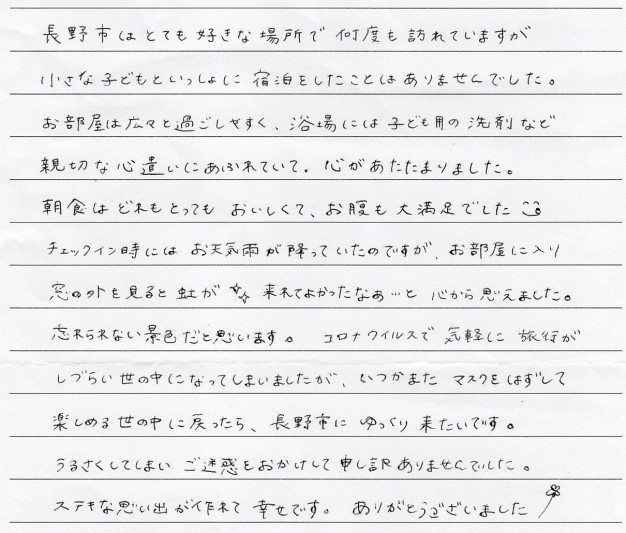 長野市はとても好きな場所で何度も訪れていますが
小さな子どもといっしょに宿泊をしたことはありませんでした。
お部屋は広々と過ごしやすく、浴場には子ども用の洗剤など
親切な心遣いにあふれていて、心があたたまりました。
朝食はどれもとってもおいしくて、お腹も大満足でした
チェックイン時にはお天気雨が降っていたのですが、お部屋に入り
窓の外を見ると虹が 来れてよかったなあ…と心から思えました。
忘れられない景色だと思います。 コロナウイルスで気軽に旅行が
しづらい世の中になってしまいましたが、いつかまたマスクをはずして
楽しめる世の中に戻ったら、長野市にゆっくり来たいです。
うるさくしてしまいご迷惑をおかけして申し訳ありませんでした。
ステキな思い出が作れて幸せです。ありがとうございました